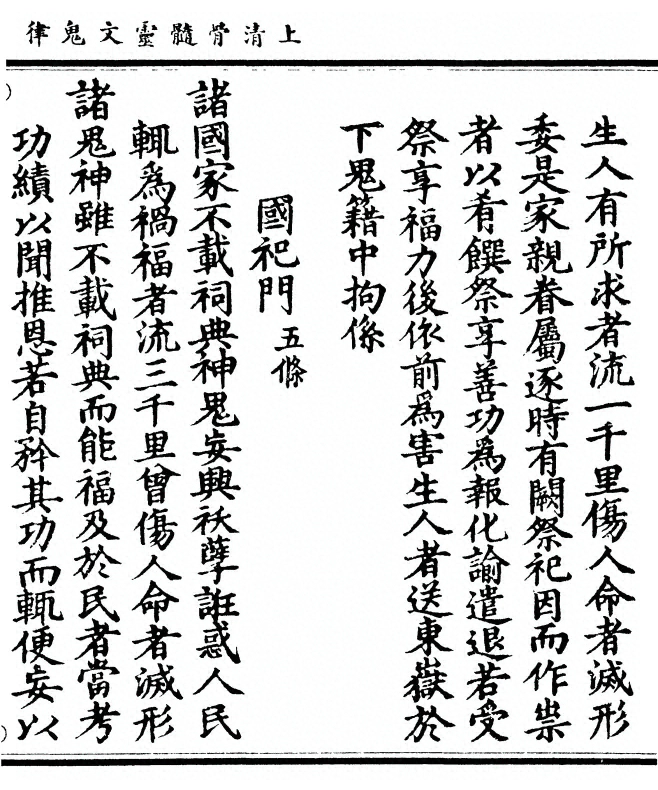 上清骨髓靈文鬼律
生人有所求者流一千里傷人命者滅形
委是家親眷屬逐時有闕祭祀因而作祟
者以肴饌祭享善功為報化諭遣退若受
祭享福力後依前為害生人者送東嶽於
下鬼籍中拘係
國祀門 五條
諸國家不載祠典神鬼妄興祅孽誑惑人民
輒為禍福者流三千里曾傷人命者滅形
諸鬼神雖不載祠典而能福及於民者當考
功績以聞推恩若自矜其功而輒便妄以